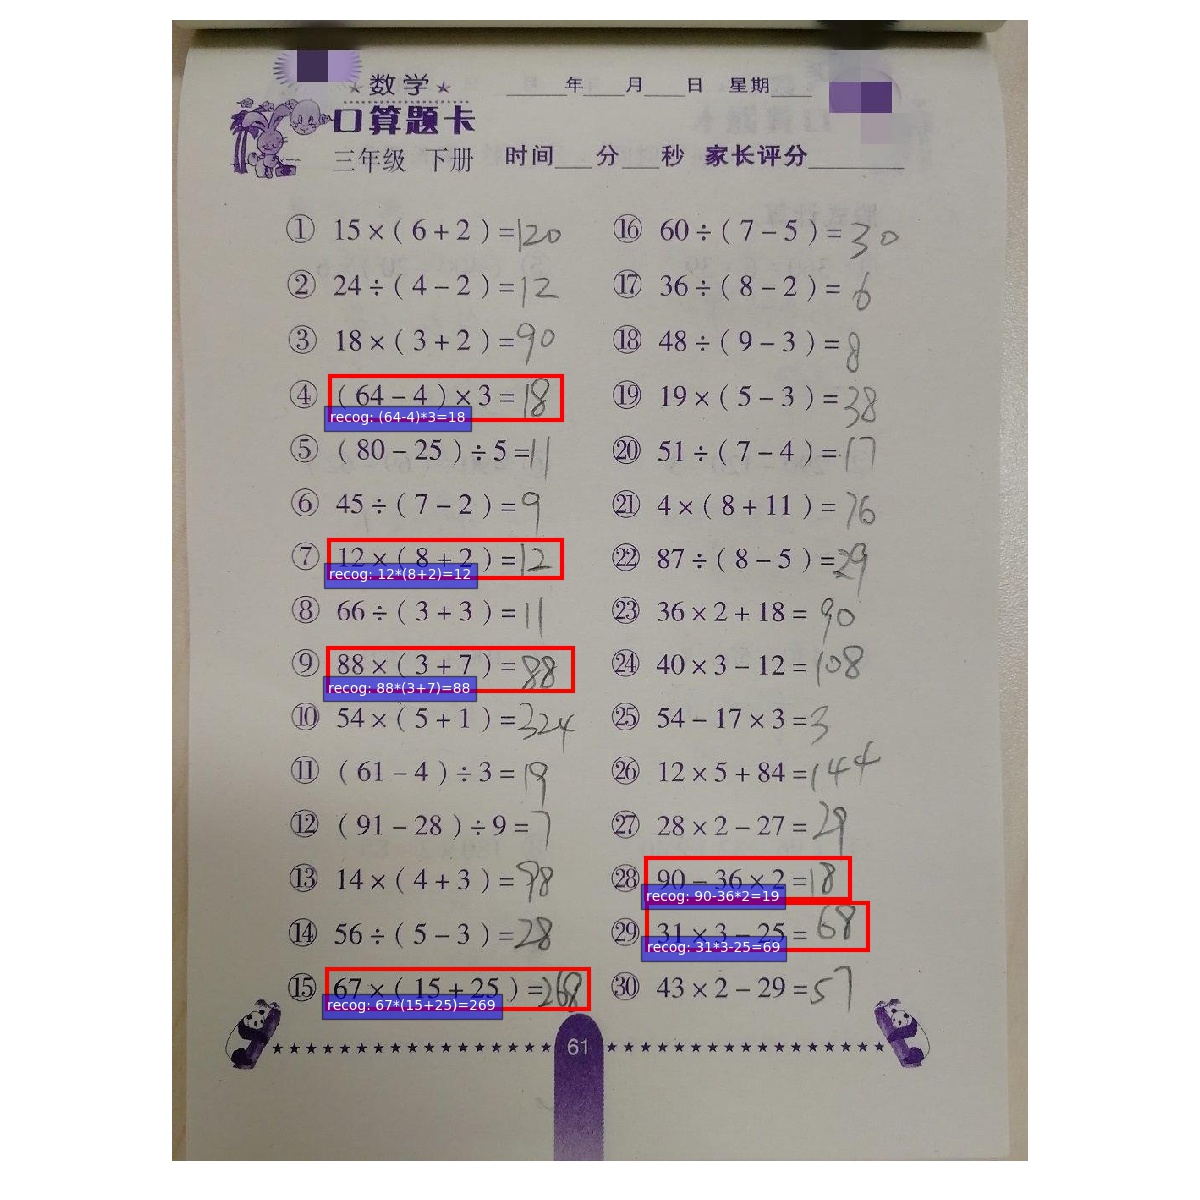 数学
口算题卡
三年级 下册
年 月 日 星期
时间 分 秒 家长评分
① 15×(6+2)=120
② 24÷(4-2)=12
③ 18×(3+2)=90
④ (64-4)×3=18
recog: (64-4)*3=18
⑤ (80-25)÷5=11
⑥ 45÷(7-2)=9
⑦ 12×(8+2)=12
recog: 12*(8+2)=12
⑧ 66÷(3+3)=11
⑨ 88×(3+7)=88
recog: 88*(3+7)=88
⑩ 54×(5+1)=324
⑪ (61-4)÷3=19
⑫ (91-28)÷9=7
⑬ 14×(4+3)=98
⑭ 56÷(5-3)=28
⑮ 67×(15+25)=268
recog: 67*(15+25)=269
⑯ 60÷(7-5)=30
⑰ 36÷(8-2)=6
⑱ 48÷(9-3)=8
⑲ 19×(5-3)=38
⑳ 51÷(7-4)=17
㉑ 4×(8+11)=76
㉒ 87÷(8-5)=29
㉓ 36×2+18=90
㉔ 40×3-12=108
㉕ 54-17×3=3
㉖ 12×5+84=144
㉗ 28×2-27=29
㉘ 90-36×2=18
recog: 90-36*2=19
㉙ 31×3-25=68
recog: 31*3-25=69
㉚ 43×2-29=57
61